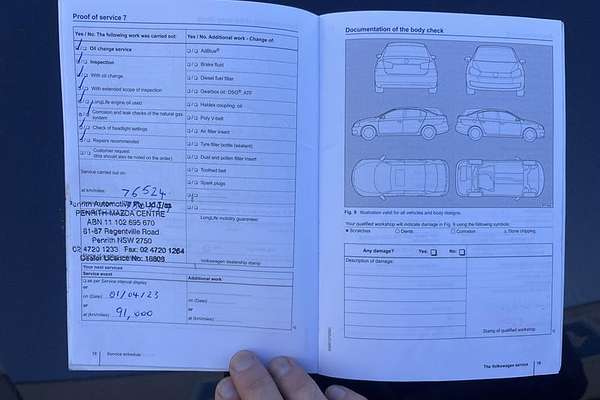 Proof of service 7
Yes / No. The following work was carried out:
Oil change service
Inspection
With oil change
With extended scope of inspection
LongLife engine oil used
Corrosion and leak checks of the natural gas system
Check of headlight settings
Repairs recommended
Customer request
(this should also be noted on the order)
Service carried out on:
at km/miles: 76524
Penrith Automotive Pty Ltd T/as
PENRITH MAZDA CENTRE
ABN 11 102 695 670
81-87 Regentville Road
Penrith NSW 2750
02 4720 1233 Fax: 02 4720 1264
Dealer Licence No: 16803
Your next services
Service event
as per Service interval display
or
on (Date) 01/04/23
or
at (km/miles) 91,000
18 Service schedule
Yes / No. Additional work - Change of:
AdBlue®
Brake fluid
Diesel fuel filter
Gearbox oil: DSG® ATF
Haldex coupling: oil
Poly V-belt
Air filter insert
Tyre filler bottle (sealant)
Dust and pollen filter insert
Toothed belt
Spark plugs
LongLife mobility guarantee:
Volkswagen dealership stamp
Additional work:
on (Date)
or
at (km/miles)
Documentation of the body check
Fig. 9 Illustration valid for all vehicles and body designs.
Your qualified workshop will indicate damage in Fig. 9 using the following symbols:
Scratches Dents Corrosion Stone chipping
Any damage? Yes: No:
Description of damage:
Stamp of qualified workshop
The Volkswagen service 19